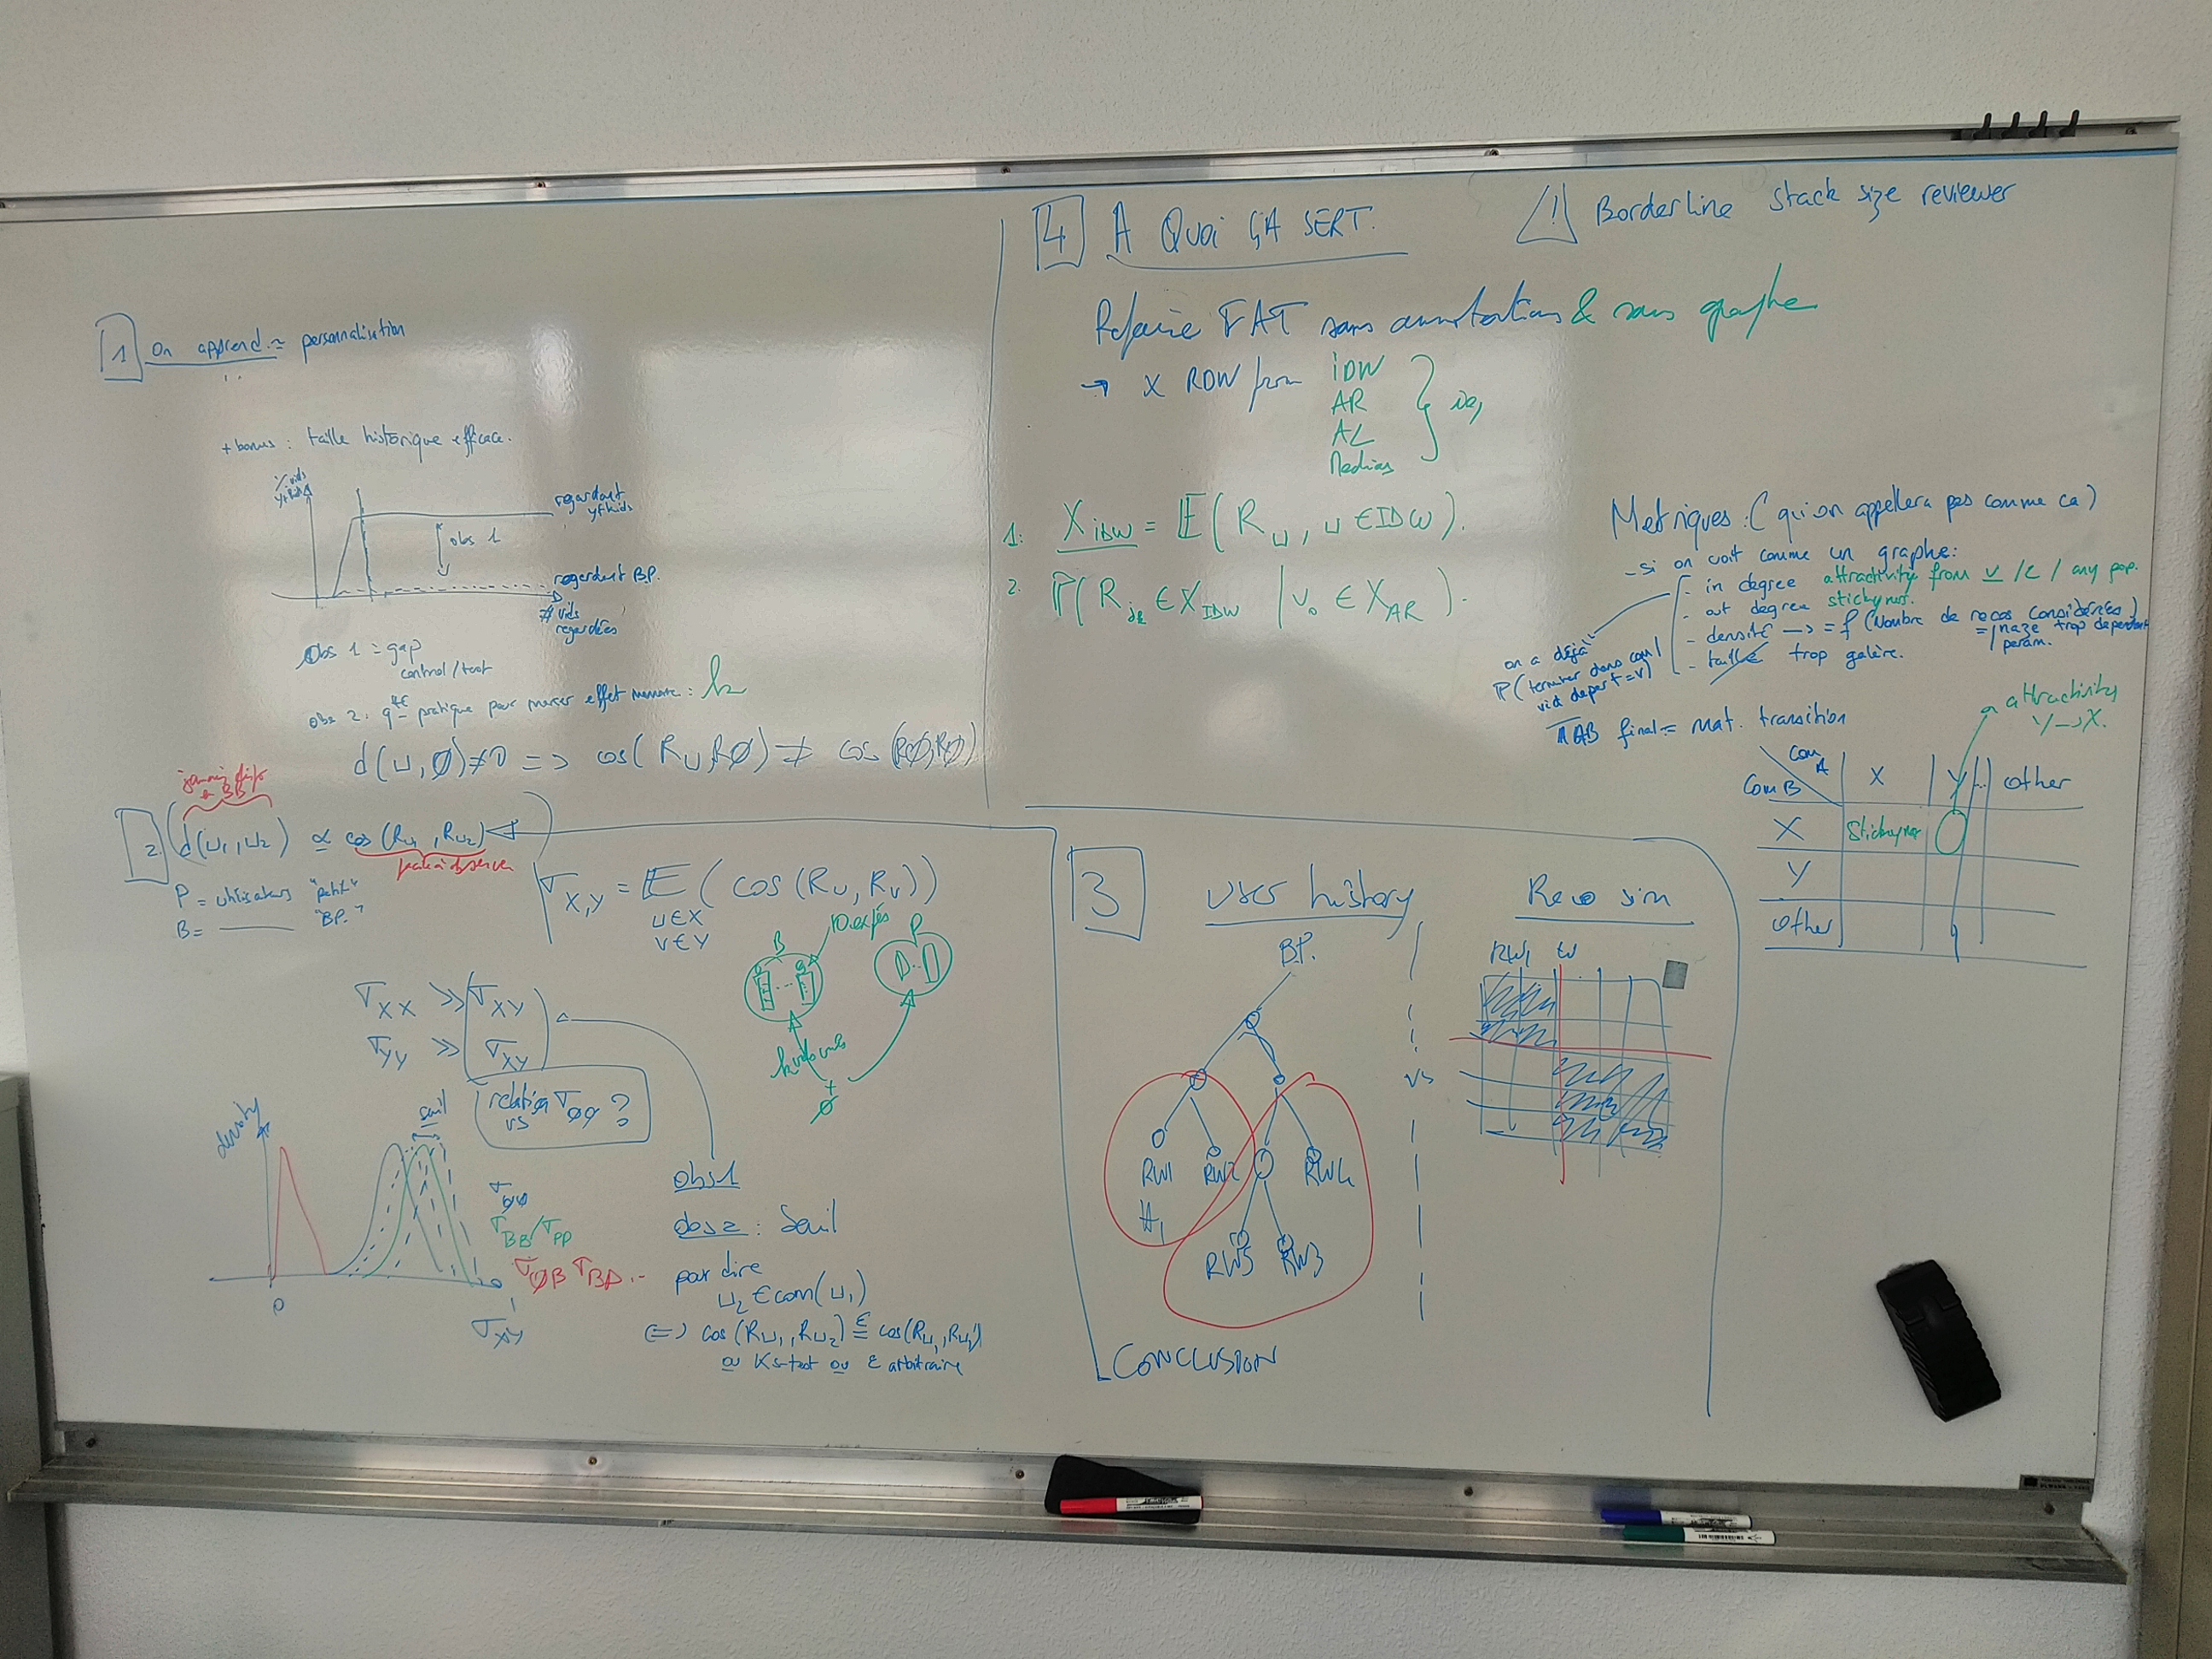 1 On apprend ≈ personnalisation
+ bonus : taille historique efficace.
% vids
yt kids
regardant
yt kids
obs 1
regardant B.P.
# vids
regardées
Obs 1 = gap
control/test
obs 2 : pratique pour mesurer effet memoire : k
d(u, Ø) ≠ 0 => cos(Ru, RØ) ≠ cos(RØ, RØ)
2 d(u1, u2) ∝ cos(Ru1, Ru2)
P = utilisateurs "petit"
B = ——— "BP."
σX,Y = E(cos(Ru, Rv))
u∈X
v∈Y
B
P
k vidéos
Ø
σXX >> σXY
σYY >> σXY
relation σØØ ?
vs
density
seuil
0
σØØ
σBB/σPP
σØB σBP ..
σXY
obs 1
obs 2 : Seuil
pour dire
u2 ∈ com(u1)
<=> cos(Ru1, Ru2) ≡ε cos(Ru1, Ru1')
ou Ks-test ou ε arbitraire
4 A QUOI ÇA SERT.
⚠ Borderline Stack size reviewer
Refaire FAT sans annotations & sans graphe
→ X RDW from iDW
AR
AL
Medias
1: XIDW = E(Ru, u ∈ IDW).
2. P(Rjk ∈ XIDW | v0 ∈ XAR).
Metriques : (qu'on appellera pas comme ca)
- si on voit comme un graphe :
- in degree attractivity from v / c / any pop.
- out degree stickyness.
- densité —> = f(Nombre de recos considérées)
= naze trop dependant
param.
- taille trop galère.
on a déjà
P(terminer dans com |
vid depart = v)
TAB final = mat. transition
attractivity
Y → X.
Com A
Com B
X Y .. other
X Stickyness
Y
other
3 User history
Reco sim
B.P.
RW1
RW2
RW4
H1
RW5
RW3
vs
RW1
CONCLUSION